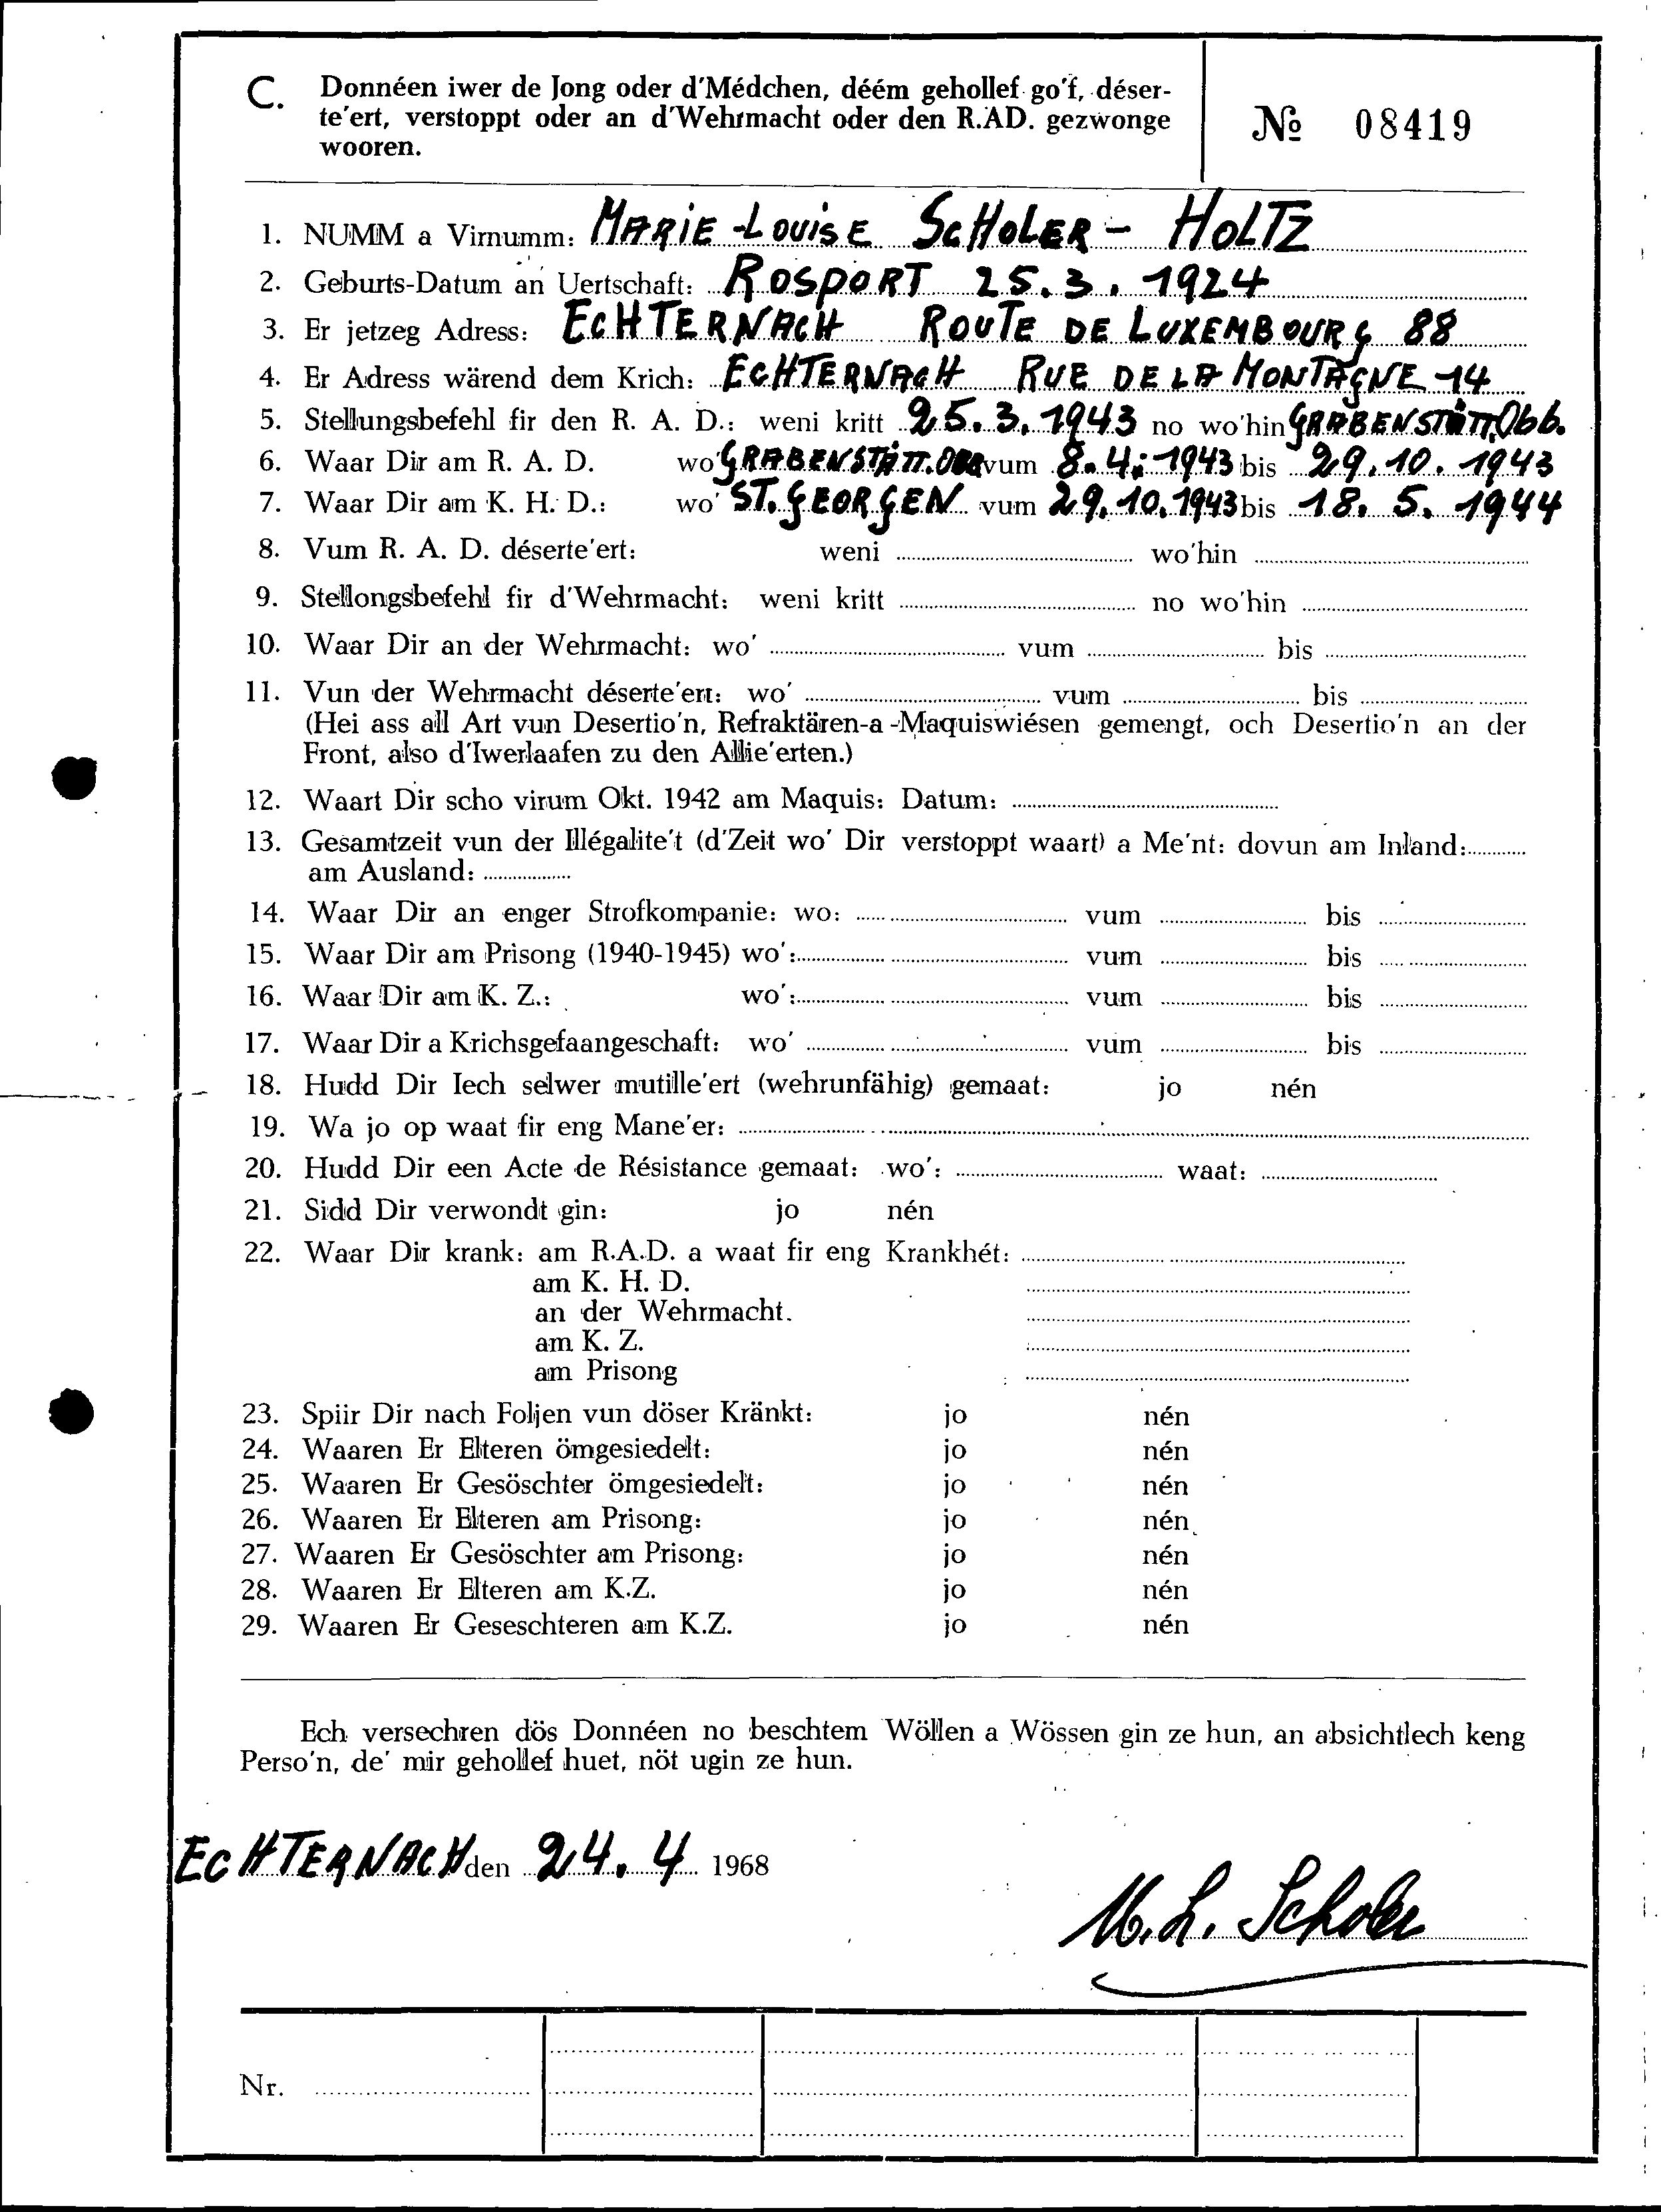 C. Donnéen iwer de Jong oder d'Médchen, déém gehollef go'f, déser-
te'ert, verstoppt oder an d'Wehrmacht oder den R.AD. gezwonge
wooren.
№ 08419
1. NUMM a Virnumm: MARIE-LOUISE SCHOLER - HOLTZ
2. Geburts-Datum an Uertschaft: ROSPORT 25.3.1924
3. Er jetzeg Adress: ECHTERNACH ROUTE DE LUXEMBOURG 88
4. Er Adress wärend dem Krich: ECHTERNACH RUE DE LA MONTAGNE 14
5. Stellungsbefehl fir den R. A. D.: weni kritt 25.3.1943 no wo'hin GRABENSTÄTT Obb.
6. Waar Dir am R. A. D. wo' GRABENSTÄTT. OBB vum 8.4.1943 bis 29.10.1943
7. Waar Dir am K. H. D.: wo' ST. GEORGEN vum 29.10.1943 bis 18. 5. 1944
8. Vum R. A. D. déserte'ert: weni wo'hin
9. Stellongsbefehl fir d'Wehrmacht: weni kritt no wo'hin
10. Waar Dir an der Wehrmacht: wo' vum bis
11. Vun der Wehrmacht déserte'ert: wo' vum bis
(Hei ass all Art vun Desertio'n, Refraktären-a -Maquiswiésen gemengt, och Desertio'n an der
Front, also d'Iwerlaafen zu den Allie'erten.)
12. Waart Dir scho virum Okt. 1942 am Maquis: Datum:
13. Gesamtzeit vun der Illégalite't (d'Zeit wo' Dir verstoppt waart) a Me'nt: dovun am Inland:
am Ausland:
14. Waar Dir an enger Strofkompanie: wo: vum bis
15. Waar Dir am Prisong (1940-1945) wo': vum bis
16. Waar Dir am K. Z.: wo': vum bis
17. Waar Dir a Krichsgefaangeschaft: wo' vum bis
18. Hudd Dir Iech selwer mutille'ert (wehrunfähig) gemaat: jo nén
19. Wa jo op waat fir eng Mane'er:
20. Hudd Dir een Acte de Résistance gemaat: wo': waat:
21. Sidd Dir verwondt gin: jo nén
22. Waar Dir krank: am R.A.D. a waat fir eng Krankhét:
am K. H. D.
an der Wehrmacht.
am K. Z.
am Prisong
23. Spiir Dir nach Foljen vun döser Kränkt: jo nén
24. Waaren Er Elteren ömgesiedelt: jo nén
25. Waaren Er Gesöschter ömgesiedelt: jo nén
26. Waaren Er Elteren am Prisong: jo nén
27. Waaren Er Gesöschter am Prisong: jo nén
28. Waaren Er Elteren am K.Z. jo nén
29. Waaren Er Geseschteren am K.Z. jo nén
Ech versechren dös Donnéen no beschtem Wöllen a Wössen gin ze hun, an absichtlech keng
Perso'n, de' mir gehollef huet, nöt ugin ze hun.
ECHTERNACH den 24. 4 1968
M. L. Scholer
Nr.